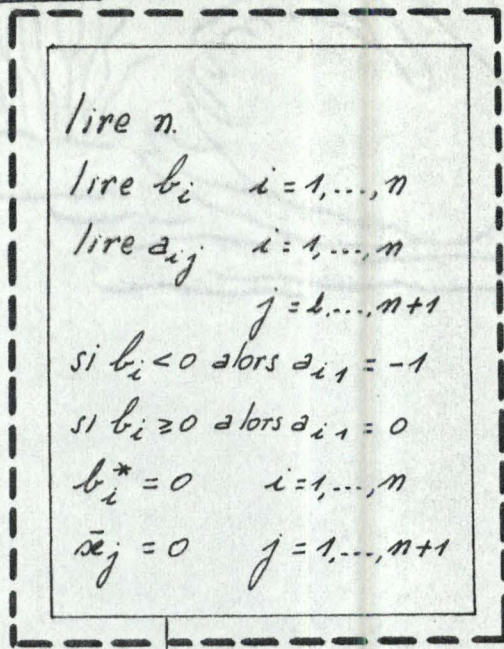 lire n.
lire b_i i = 1,...,n
lire a_ij i = 1,...,n
j = 2,...,n+1
si b_i < 0 alors a_i1 = -1
si b_i ≥ 0 alors a_i1 = 0
b_i* = 0 i = 1,...,n
x̄_j = 0 j = 1,...,n+1